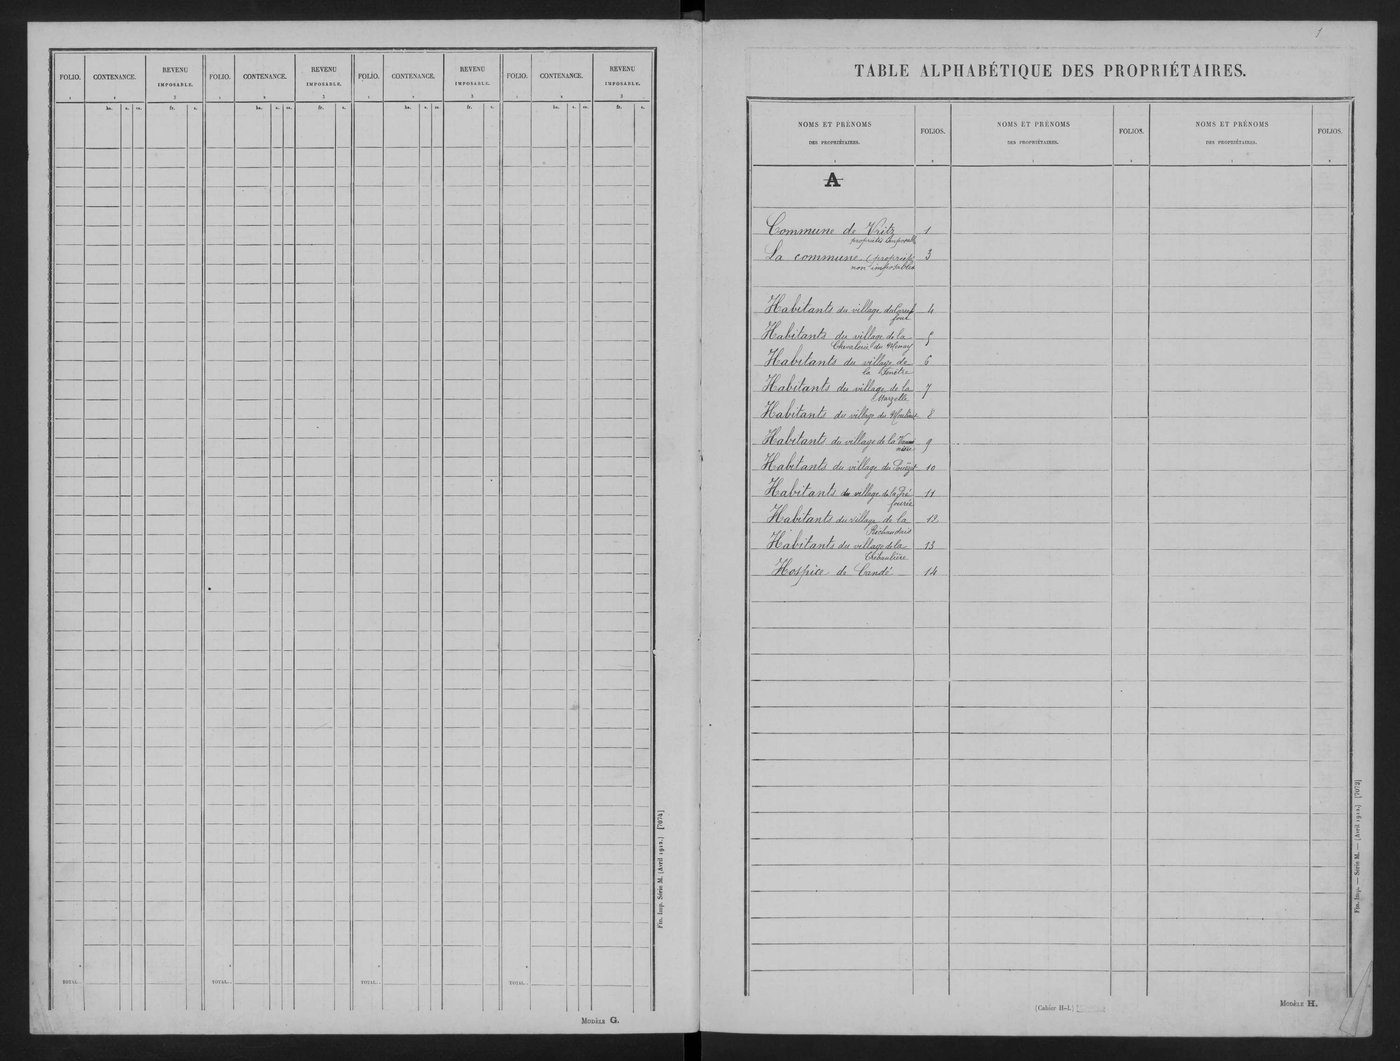 FOLIO. CONTENANCE. REVENU IMPOSABLE. FOLIO. CONTENANCE. REVENU IMPOSABLE. FOLIO. CONTENANCE. REVENU IMPOSABLE. FOLIO. CONTENANCE. REVENU IMPOSABLE.
1 2 3 1 2 3 1 2 3 1 2 3
ha. a. ca. fr. c. ha. a. ca. fr. c. ha. a. ca. fr. c. ha. a. ca. fr. c.
TOTAL.. TOTAL.. TOTAL.. TOTAL..
Fin. Imp. Série M. (Avril 1912.) [7074]
MODÈLE G.
1
TABLE ALPHABÉTIQUE DES PROPRIÉTAIRES.
NOMS ET PRÉNOMS DES PROPRIÉTAIRES. FOLIOS. NOMS ET PRÉNOMS DES PROPRIÉTAIRES. FOLIOS. NOMS ET PRÉNOMS DES PROPRIÉTAIRES. FOLIOS.
1 2 1 2 1 2
A
Commune de Vritz 1
propriétés imposables
La commune (propriétés 3
non imposables
Habitants du village 4
Habitants du village de la 5
Habitants du village de 6
la
Habitants du village de la 7
Habitants du village du 8
Habitants du village de la 9
Habitants du village du 10
Habitants du village de la 11
Habitants du village de la 12
Habitants du village de la 13
Hospice de Candé 14
Fin. Imp. — Série M. — (Avril 1912.) [7073]
(Cahier H-1.)
MODÈLE H.